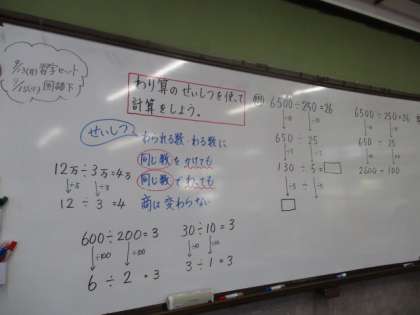 習字セット
国語下
わり算のせいしつを使って
計算をしよう。
せいしつ
わられる数・わる数に
同じ数をかけても
同じ数でわっても
商は変わらない
12万÷3万=4
÷万 ÷万
12÷3=4
600÷200=3
÷100 ÷100
6÷2=3
30÷10=3
÷10 ÷10
3÷1=3
6500÷250=26
÷10 ÷10
650÷25
÷5 ÷5
130÷5=□
÷5 ÷5
□
6500÷250=26
650÷25
2600÷100